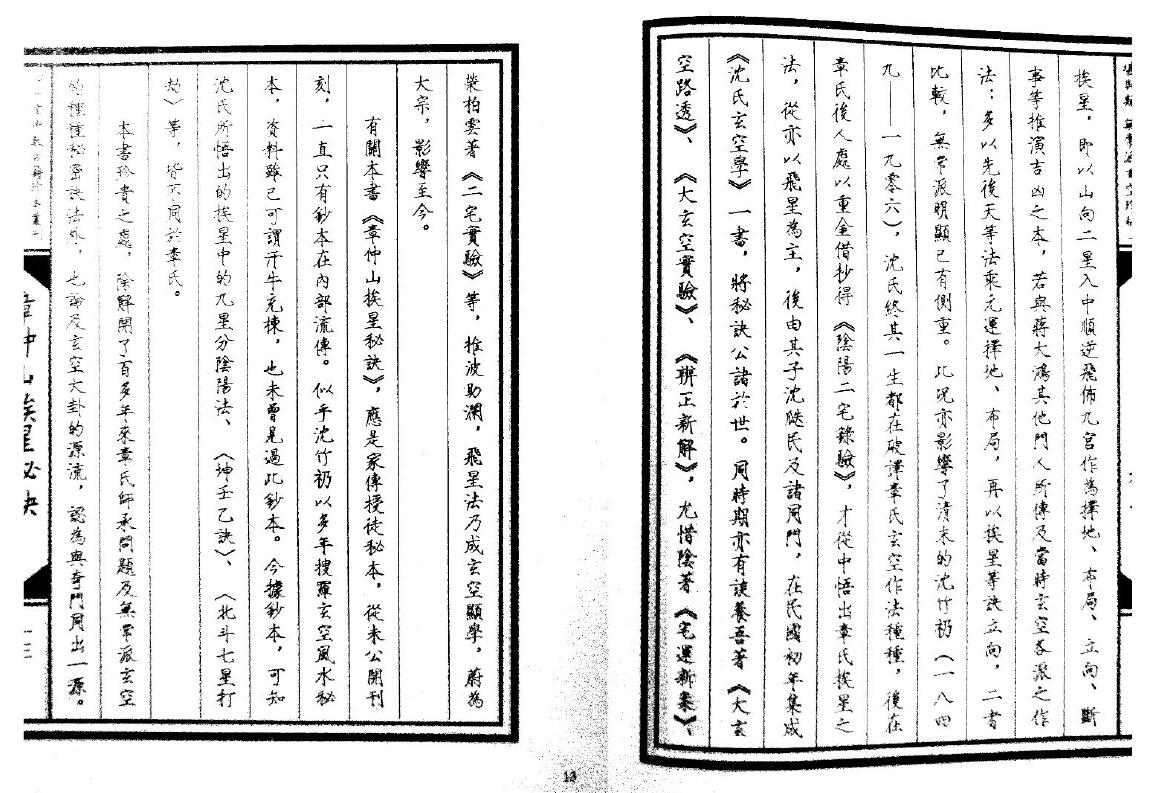 挨星，即以山向二星入中順逆飛佈九宮作為擇地、布局、立向、斷
事等推演吉凶之本，若與蔣大鴻其他門人所傳及當時玄空各派之作
法：多以先後天等法乘元運擇地、布局，再以挨星等訣立向，二者
比較，無常派明顯已有側重。此況亦影響了清末的沈竹礽（一八四
九——一九零六），沈氏終其一生都在破譯章氏玄空作法種種，後在
章氏後人處以重金借抄得《陰陽二宅錄驗》，才從中悟出章氏挨星之
法，從亦以飛星為主，後由其子沈瓞民及諸同門，在民國初年集成
《沈氏玄空學》一書，將秘訣公諸於世。同時期亦有談養吾著《大玄
空路透》、《大玄空實驗》、《辨正新解》，尤惜陰著《宅運新案》、
榮柏雲著《二宅實驗》等，推波助瀾，飛星法乃成玄空顯學，蔚為
大宗，影響至今。
有關本書《章仲山挨星秘訣》，應是家傳授徒秘本，從未公開刊
刻，一直只有鈔本在內部流傳。似乎沈竹礽以多年搜羅玄空風水秘
本，資料雖已可謂汗牛充棟，也未曾見過此鈔本。今據鈔本，可知
沈氏所悟出的挨星中的九星分陰陽法、〈坤壬乙訣〉、〈北斗七星打
劫〉等，皆不同於章氏。
本書珍貴之處，除解開了百多年來章氏師承問題及無常派玄空
的種種秘密訣法外，也論及玄空大卦的源流，認為與奇門同出一源。
章仲山挨星秘訣
一三
13